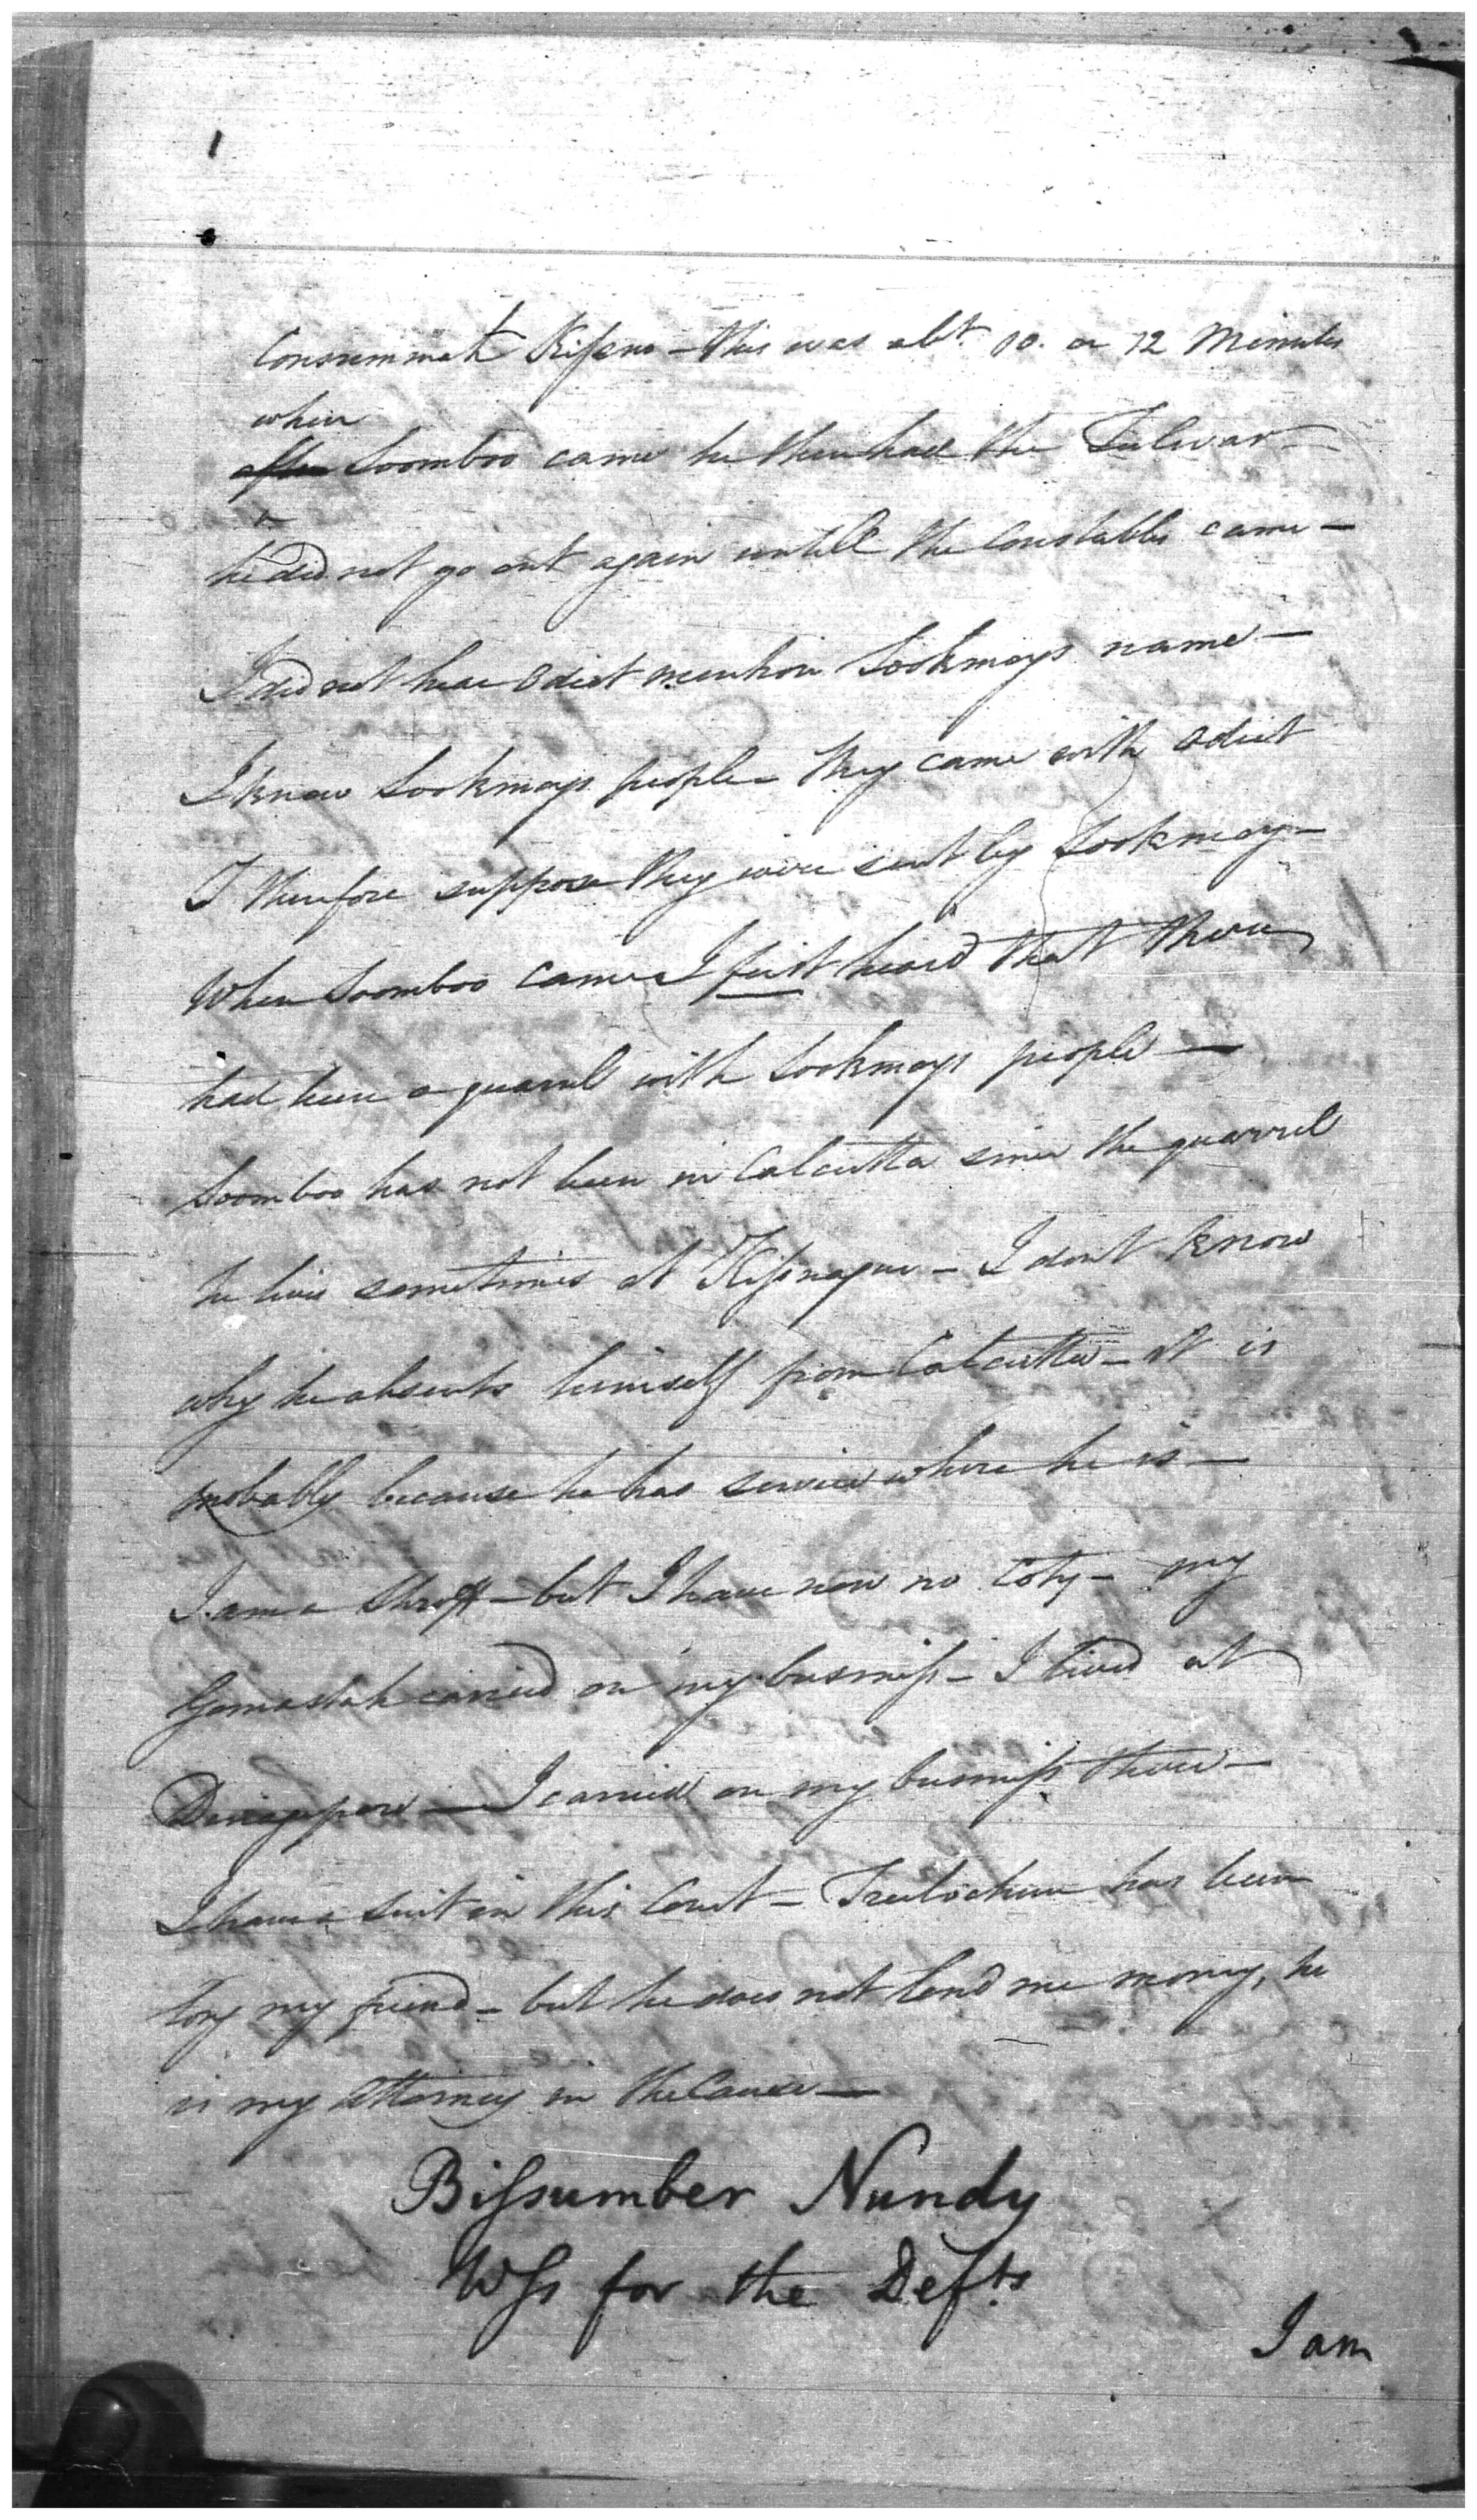 Consummate Kissno - this was abt. 10. or 12 Minutes
when
after Soomboo came he then had the Tulwar
he did not go out again untill the Constables came -
I did not hear Odiet mention Sookmoys name -
I know Sookmoys people - they came with Odiet
I therefore suppose they were sent by Sookmoy -
When Soomboo came I first heard that there
had been a quarrel with Sookmoys people -
Soomboo has not been in Calcutta since the quarrel
he lives sometimes at Kissnagur - I dont know
why he absents himself from Calcutta - it is
probably because he has service where he is -
I am a Shroff - but I have now no Coty - my
Gomastah carried on my business - I lived at
Dinagepore - I carried on my business there -
I have a Suit in this Court - Treelochun has been
long my friend - but he does not lend me money, he
is my Attorney in the Cause -
Bissumber Nundy
Wss for the Defts
I am